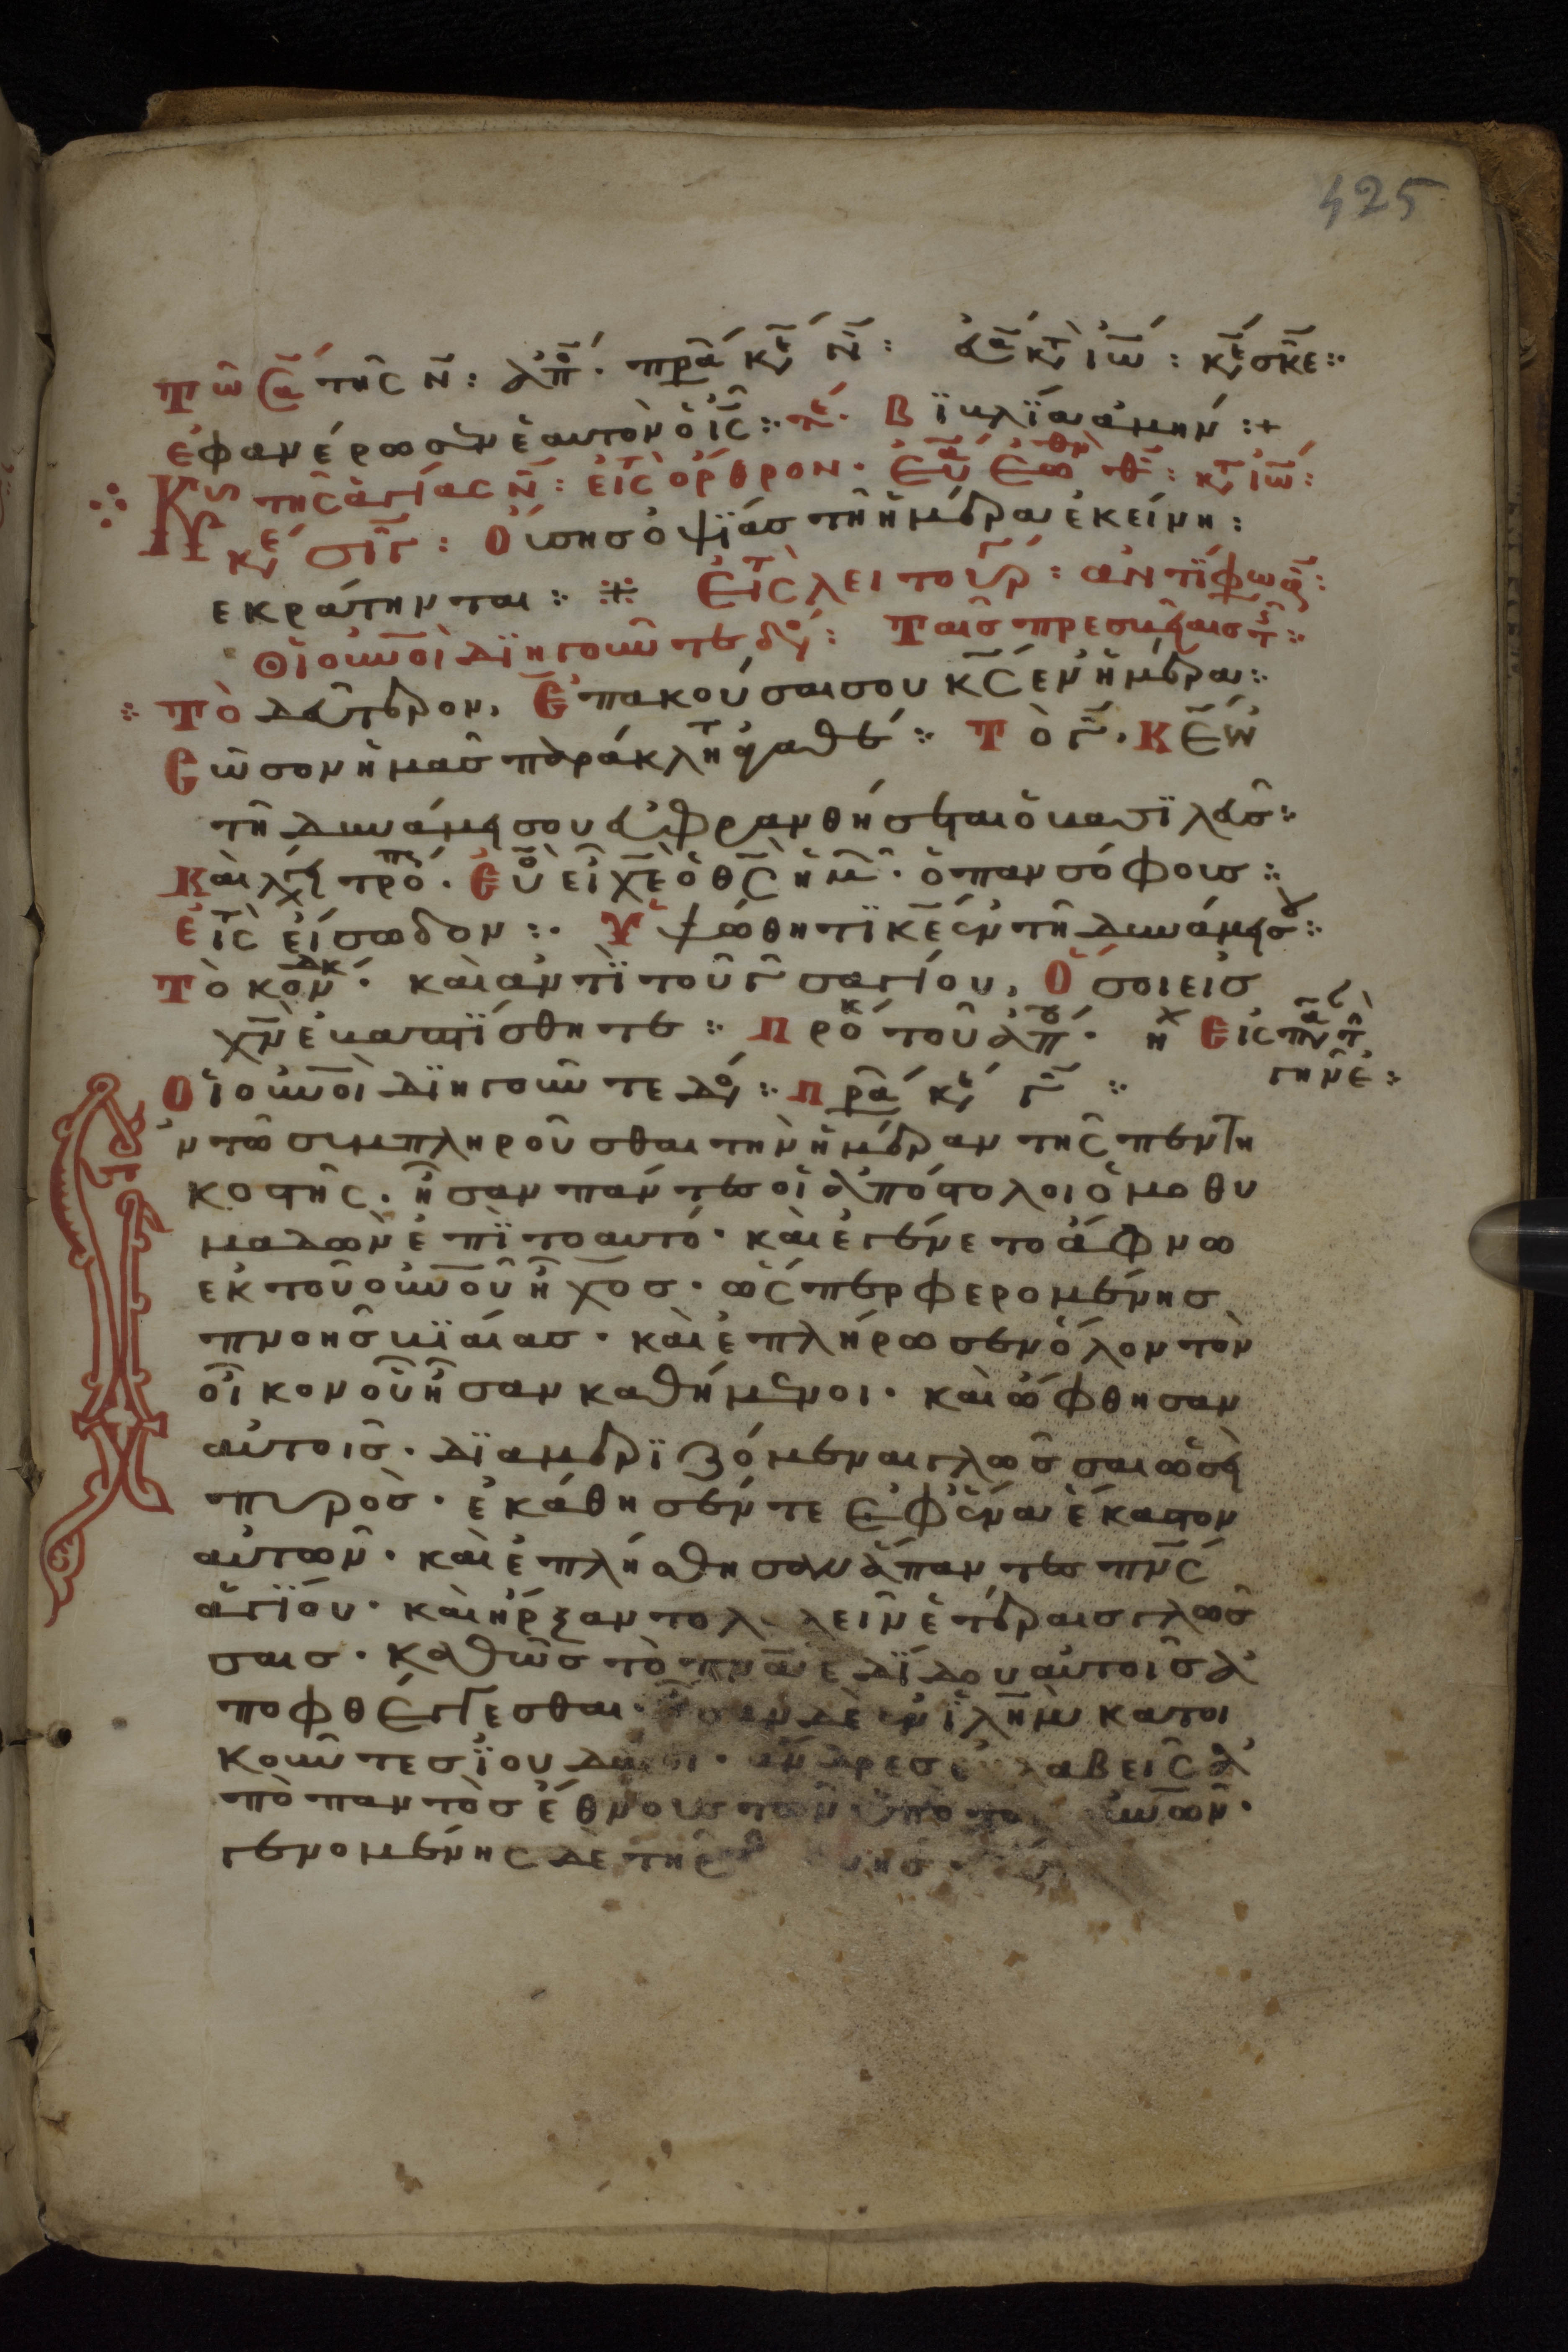 425
Τῶ Σα τῆς Ν: ἀπο. πρα κε Ν: εὐα κτ ἰω: κε σκε:
ἐφανέρωσεν ἑαυτὸν ὁ ις: τε. βϊβλΐα ἀμήν :+
Κυ τῆς ἁγίας Ν: εἰς τ ὄρθρον. Εὐα Ἑωθιν θ: κτ ἰω:
κε σιγ: Οὔσης ὀψΐας τῆ ἡμέρα ἐκείνη:
εκράτηνται: Εἰς τ λειτουργ: ἀντΐφωα:
Οἱ οὐνοὶ δϊηγοῦντε δο: Ταῖς πρεσβείαις τ:
Τὸ δεύτερον, Ἐπακούσαι σου κς εν ἡμέρα:
Σῶσον ἡμᾶς παράκλητ ἀγαθέ: Τὸ γ. Κε ἐν
τῆ δυνάμει σου εὐφρανθήσεται ὁ βασϊλεῦς:
Καὶ λέγει τρο. Εὐο εἶ χε ὁ θς ἡμ. ὁ πανσόφους:
εἰς τ εἴσοδον: Ὑψώθητϊ κε ἐν τῆ δυνάμει σου:
Τὸ κονδκ. καὶ ἀντῒ τοῦ τρισαγίου, Ὅσοι εις
χν ἐβαπτΐσθητε: Προκ τοῦ ἀπο. ἠχ Εἰς πα τ
γῆν ἐ:
Οἱ οὐνοὶ δϊηγοῦντε δο: Πρα κε γ :
Ἐν τῶ συμπληροῦσθαι τὴν ἡμέραν τῆς πεντη
κοστῆς. ἦσαν πάντες οἱ ἀπόστολοι ὁμοθυ
μαδὸν ἐπῒ το αυτό. καὶ ἐγένετο ἄφνω
εκ τοῦ οὐνοῦ ἦχος. ὥσπερ φερομένης
πνοῆς βϊαίας. καὶ ἐπλήρωσεν ὅλον τὸν
οἶκον οὗ ἦσαν καθήμενοι. καὶ ὤφθησαν
αὐτοῖς. δϊαμερϊζόμεναι γλῶσσαι ὡσεὶ
πυρὸς. ἐκάθησέν τε ἐφ ἕνα ἕκαστον
αὐτῶν. καὶ ἐπλήσθησαν ἅπαντες πνς
ἁγΐου. καὶ ἤρξαντο λαλεῖν ἑτέραις γλῶσ
σαις. Καθὼς τὸ πνα ἐδΐδου αὐτοῖς ἀ
ποφθέγγεσθαι. ἦσαν δὲ ἐν ϊλημ κατοι
κοῦντες ϊουδαῖοι. ἄνδρες εὐλαβεῖς ἀ
πὸ παντὸς ἔθνους τῶν ὑπὸ τὸν οὐνόν.
γενομένης δὲ τῆς